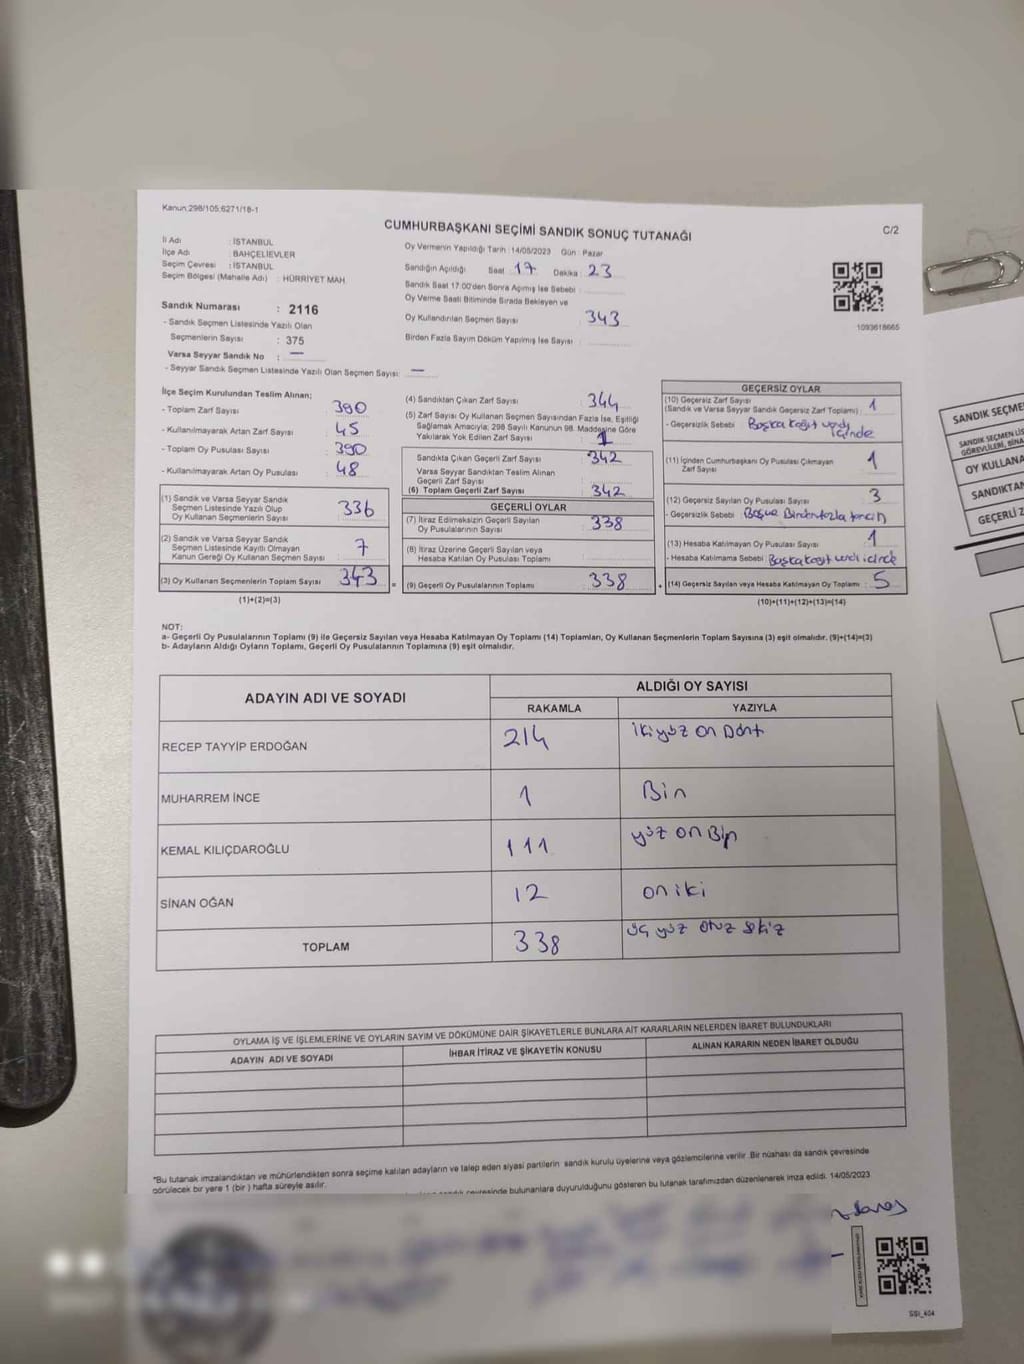 Kanun:298/105;6271/18-1
CUMHURBAŞKANI SEÇİMİ SANDIK SONUÇ TUTANAĞI
C/2
İl Adı : İSTANBUL
İlçe Adı : BAHÇELİEVLER
Seçim Çevresi : İSTANBUL
Seçim Bölgesi (Mahalle Adı) : HÜRRİYET MAH
Sandık Numarası : 2116
- Sandık Seçmen Listesinde Yazılı Olan
Seçmenlerin Sayısı : 375
Varsa Seyyar Sandık No : —
- Seyyar Sandık Seçmen Listesinde Yazılı Olan Seçmen Sayısı: —
Oy Vermenin Yapıldığı Tarih :14/05/2023 Gün : Pazar
Sandığın Açıldığı Saat 17 Dakika : 23
Sandık Saat 17:00'den Sonra Açılmış İse Sebebi :
Oy Verme Saati Bitiminde Sırada Bekleyen ve
Oy Kullandırılan Seçmen Sayısı : 343
Birden Fazla Sayım Döküm Yapılmış İse Sayısı :
1093618665
İlçe Seçim Kurulundan Teslim Alınan;
- Toplam Zarf Sayısı : 390
- Kullanılmayarak Artan Zarf Sayısı : 45
- Toplam Oy Pusulası Sayısı : 390
- Kullanılmayarak Artan Oy Pusulası : 48
(1) Sandık ve Varsa Seyyar Sandık
Seçmen Listesinde Yazılı Olup
Oy Kullanan Seçmenlerin Sayısı : 336
(2) Sandık ve Varsa Seyyar Sandık
Seçmen Listesinde Kayıtlı Olmayan
Kanun Gereği Oy Kullanan Seçmen Sayısı : 7
(3) Oy Kullanan Seçmenlerin Toplam Sayısı : 343 =
(1)+(2)=(3)
(4) Sandıktan Çıkan Zarf Sayısı : 344
(5) Zarf Sayısı Oy Kullanan Seçmen Sayısından Fazla İse, Eşitliği
Sağlamak Amacıyla; 298 Sayılı Kanunun 98. Maddesine Göre
Yakılarak Yok Edilen Zarf Sayısı : 1
Sandıkta Çıkan Geçerli Zarf Sayısı : 342
Varsa Seyyar Sandıktan Teslim Alınan
Geçerli Zarf Sayısı :
(6) Toplam Geçerli Zarf Sayısı : 342
GEÇERLİ OYLAR
(7) İtiraz Edilmeksizin Geçerli Sayılan
Oy Pusulalarının Sayısı : 338
(8) İtiraz Üzerine Geçerli Sayılan veya
Hesaba Katılan Oy Pusulası Toplamı :
(9) Geçerli Oy Pusulalarının Toplamı : 338 +
GEÇERSİZ OYLAR
(10) Geçersiz Zarf Sayısı
(Sandık ve Varsa Seyyar Sandık Geçersiz Zarf Toplamı) : 1
- Geçersizlik Sebebi : Başka kağıt vardı
içinde
(11) İçinden Cumhurbaşkanı Oy Pusulası Çıkmayan
Zarf Sayısı : 1
(12) Geçersiz Sayılan Oy Pusulası Sayısı : 3
- Geçersizlik Sebebi :
(13) Hesaba Katılmayan Oy Pusulası Sayısı : 1
- Hesaba Katılmama Sebebi : Başka kağıt vardı içinde
(14) Geçersiz Sayılan veya Hesaba Katılmayan Oy Toplamı : 5
(10)+(11)+(12)+(13)=(14)
NOT:
a- Geçerli Oy Pusulalarının Toplamı (9) ile Geçersiz Sayılan veya Hesaba Katılmayan Oy Toplamı (14) Toplamları, Oy Kullanan Seçmenlerin Toplam Sayısına (3) eşit olmalıdır. (9)+(14)=(3)
b- Adayların Aldığı Oyların Toplamı, Geçerli Oy Pusulalarının Toplamına (9) eşit olmalıdır.
ADAYIN ADI VE SOYADI
ALDIĞI OY SAYISI
RAKAMLA YAZIYLA
RECEP TAYYİP ERDOĞAN 214 ikiyüz on Dört
MUHARREM İNCE 1 Bin
KEMAL KILIÇDAROĞLU 111 yüz on Bin
SİNAN OĞAN 12 on iki
TOPLAM 338 üç yüz otuz sekiz
OYLAMA İŞ VE İŞLEMLERİNE VE OYLARIN SAYIM VE DÖKÜMÜNE DAİR ŞİKAYETLERLE BUNLARA AİT KARARLARIN NELERDEN İBARET BULUNDUKLARI
ADAYIN ADI VE SOYADI İHBAR İTİRAZ VE ŞİKAYETİN KONUSU ALINAN KARARIN NEDEN İBARET OLDUĞU
*Bu tutanak imzalandıktan ve mühürlendikten sonra seçime katılan adayların ve talep eden siyasi partilerin sandık kurulu üyelerine veya gözlemcilerine verilir. Bir nüshası da sandık çevresinde
görülecek bir yere 1 (bir ) hafta süreyle asılır.
sandık çevresinde bulunanlara duyurulduğunu gösteren bu tutanak tarafımızdan düzenlenerek imza edildi. 14/05/2023
SSI_404
SANDIK SEÇME
SANDIK SEÇMEN LİS
GÖREVLİLERİ, BİNA
OY KULLANA
SANDIKTAN
GEÇERLİ Z